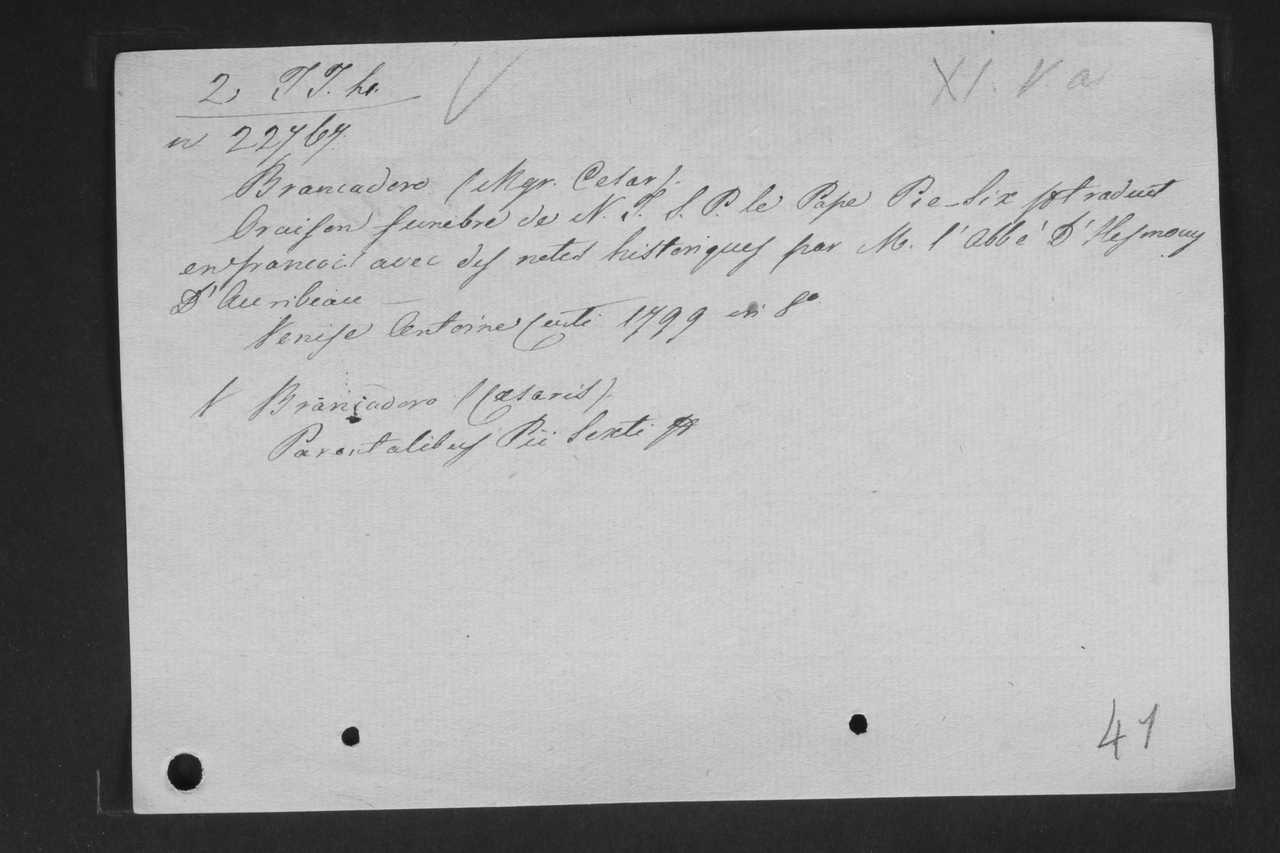 2, T T. h.
V
XI. V a
n 22767.
Brancadoro (Mgr. Cesar).
Oraison funebre de N. T. S. P. le Pape Pie-Six traduit
en francois avec des notes historiques par M. l'Abbé D'Hesmouy
D'Auribeau —
Venise Antoine Curti 1799 in 8°
V Brancadoro (Cæsaris).
Parentalibus Pii Sexti
41